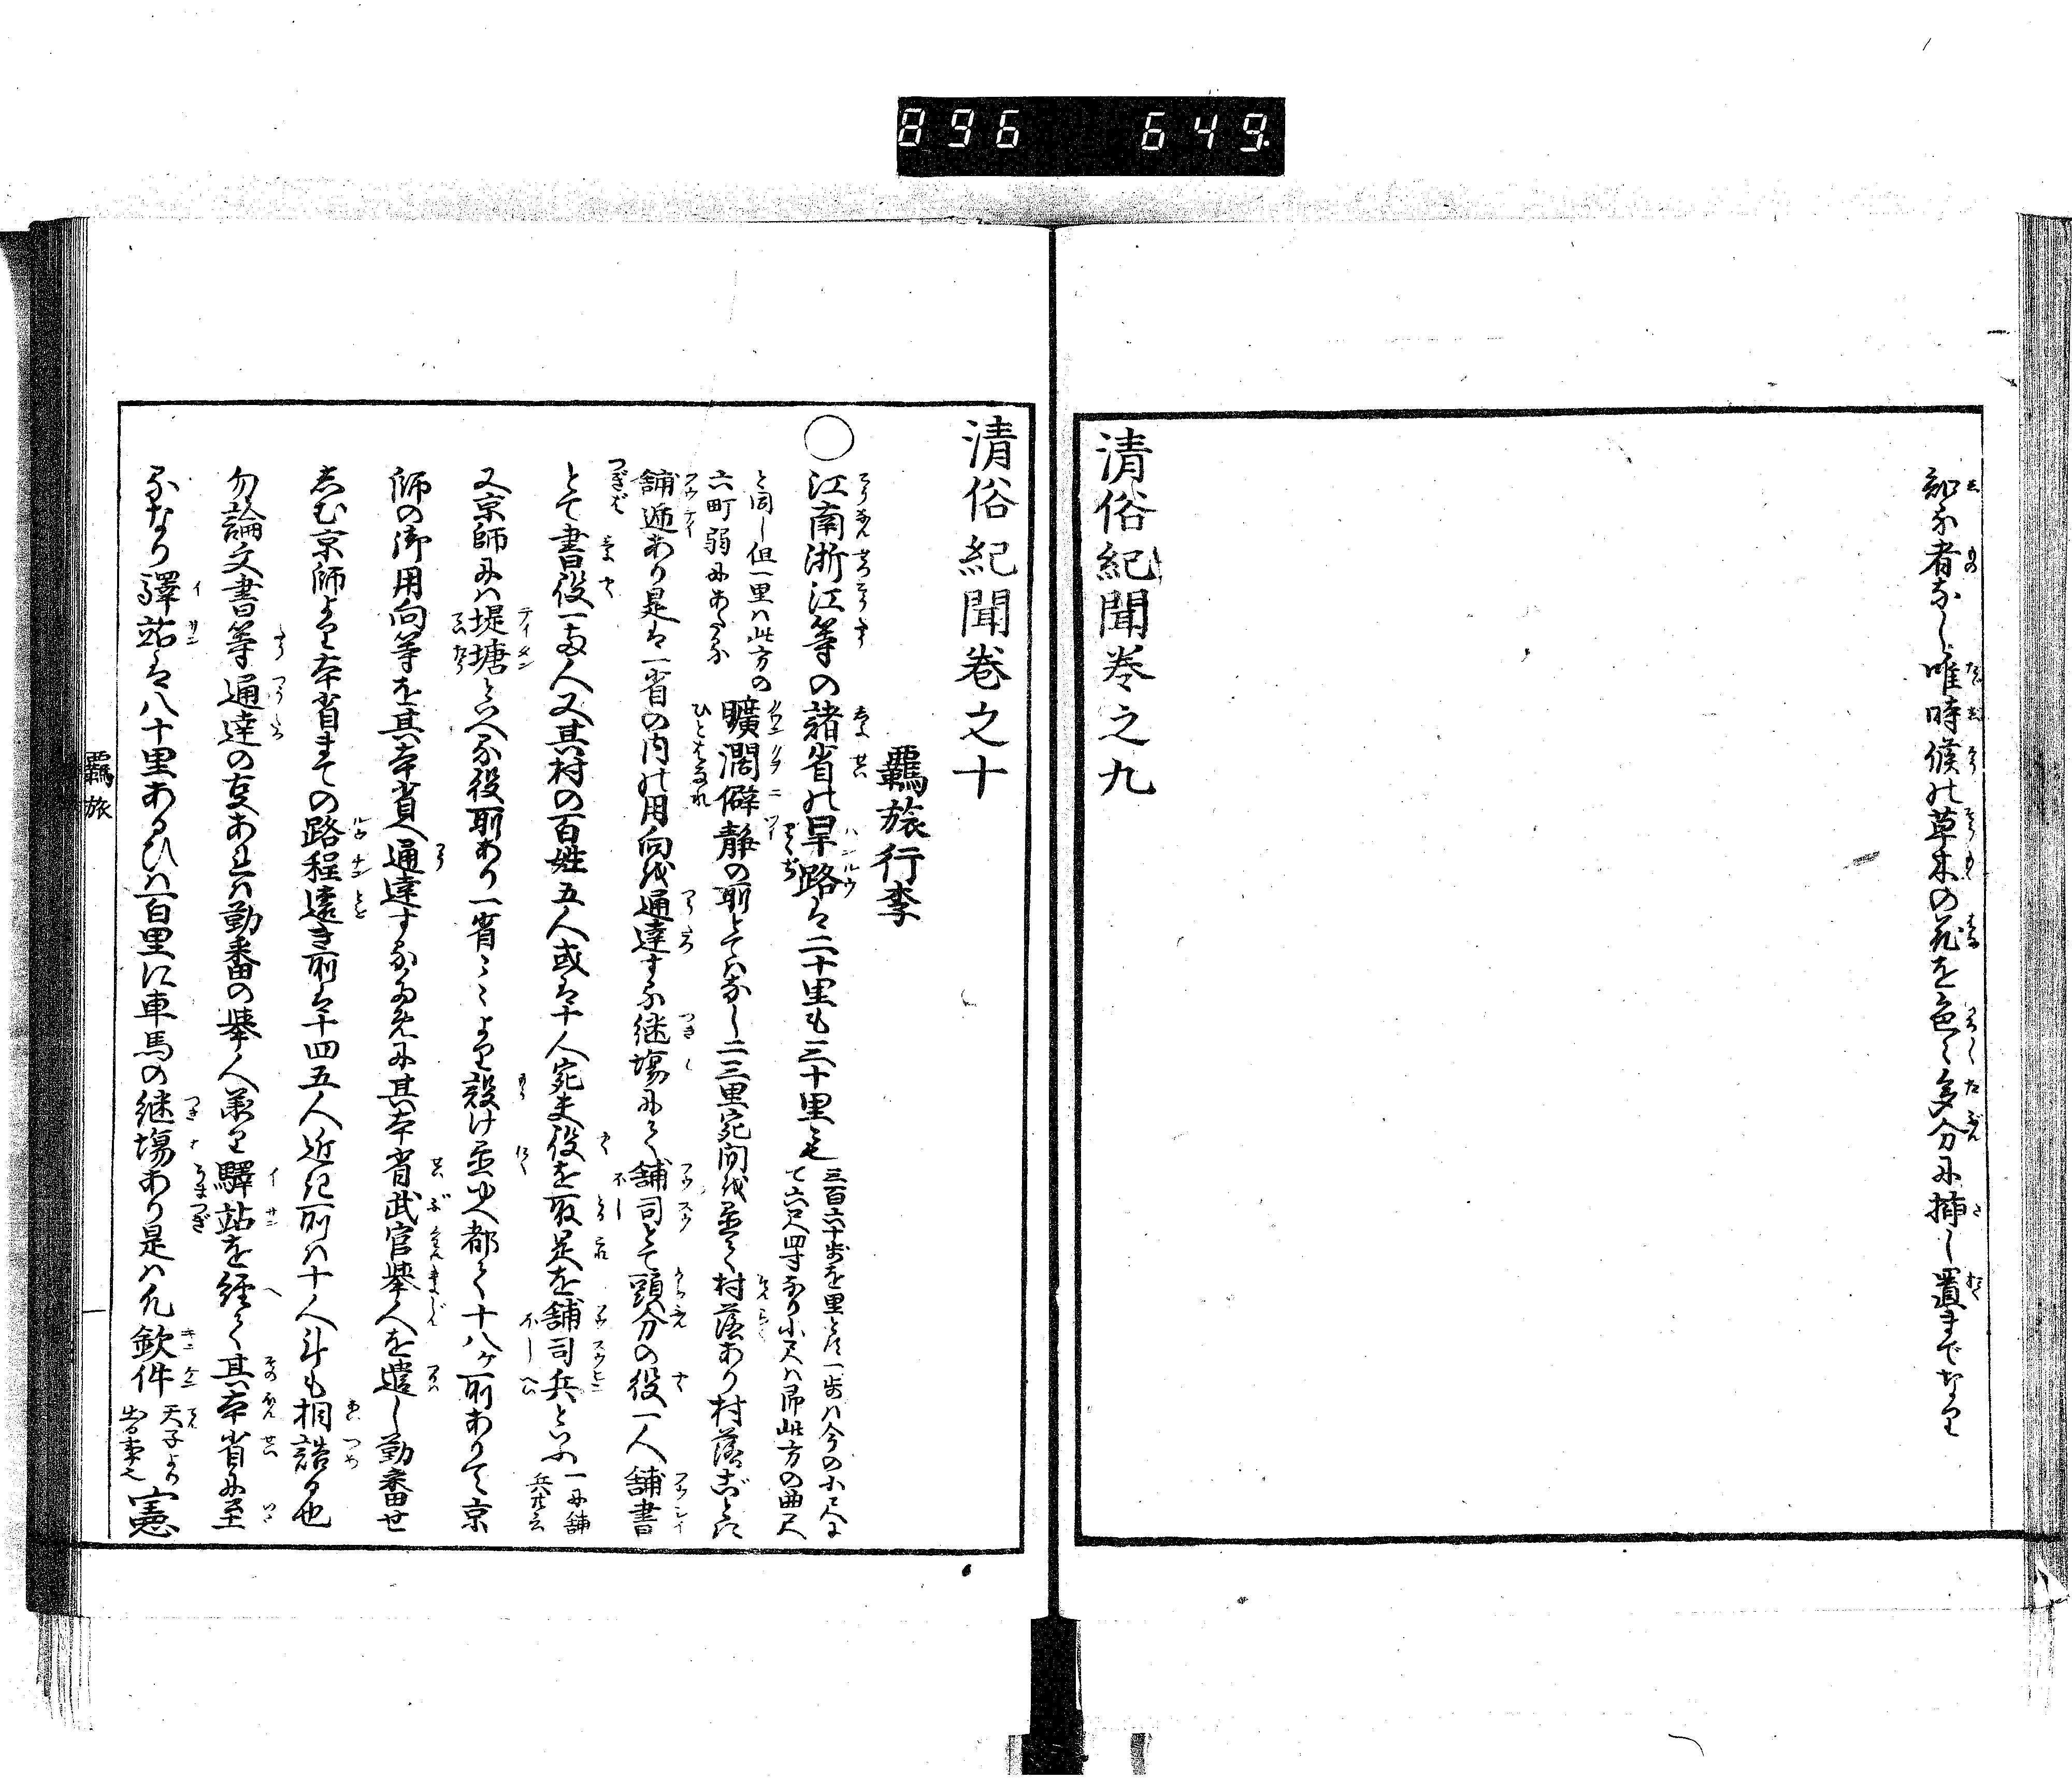 896 649.
知る者なし唯時候の草木の花を色々多分に挿し置までなり
清俗紀聞巻之九
清俗紀聞巻之十
羈旅行李
江南浙江等の諸省の旱路は二十里も三十里も
三百六十歩を里とす一歩は今の小尺に
て六尺四寸なり小尺は即此方の曲尺
と同し但一里は此方の
六町弱にあたる
曠濶僻静の所とてはなし二三里宛間を置て村落あり村落ごとに
舗逓あり是は一省の内の用向を通達する継場にて舗司とて頭分の役一人舗書
とて書役一両人又其村の百姓五人或は十人宛夫役を取足を舗司兵といふ
一に舗
兵共云
又京師には堤塘といへる役所あり一省々より設け置ゆへ都て十八ヶ所ありて京
師の御用向等を其本省へ通達する為めに其本省武官挙人を遣し勤番せ
しむ京師より本省までの路程遠き所は十四五人近き所は十人斗も相詰る也
勿論文書等通達の事あれは勤番の挙人承り驛站を経て其本省に至
るなり驛站は八十里あるひは百里に車馬の継場あり是は凡欽件
天子より
出る事也
憲
羈旅
一